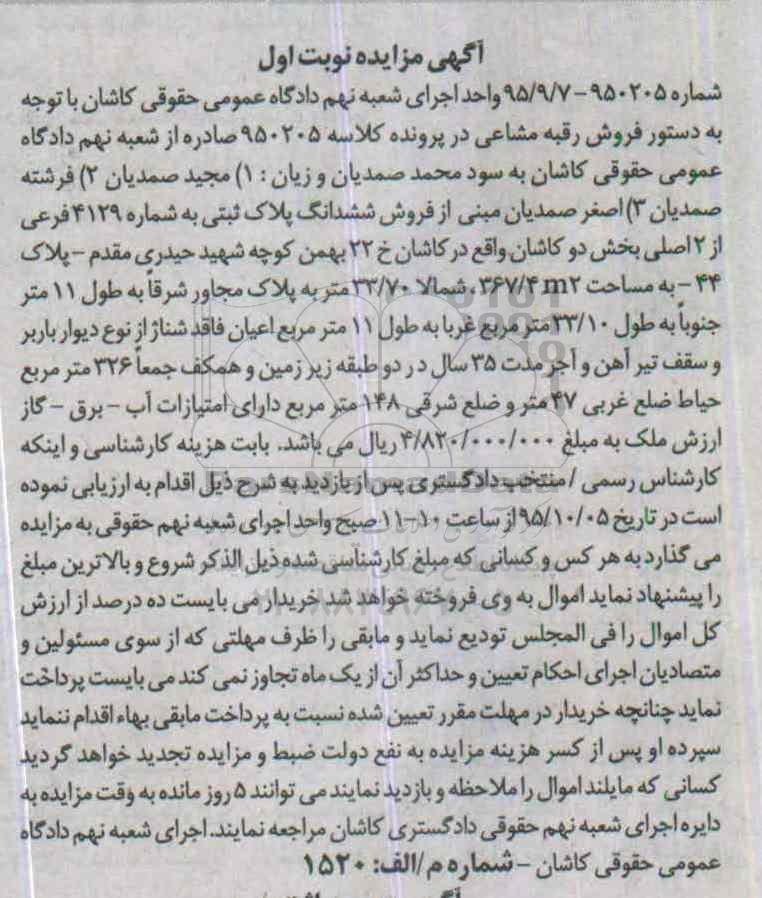 آگهی مزایده نوبت اول
شماره ۹۵۰۲۰۵-۹۵/۹/۷ واحد اجرای شعبه نهم دادگاه عمومی حقوقی کاشان با توجه
به دستور فروش رقبه مشاعی در پرونده کلاسه ۹۵۰۲۰۵ صادره از شعبه نهم دادگاه
عمومی حقوقی کاشان به سود محمد صمدیان و زیان : ۱) مجید صمدیان ۲) فرشته
صمدیان ۳) اصغر صمدیان مبنی از فروش ششدانگ پلاک ثبتی به شماره ۴۱۲۹ فرعی
از ۲ اصلی بخش دو کاشان واقع در کاشان خ ۲۲ بهمن کوچه شهید حیدری مقدم - پلاک
۴۴ - به مساحت ۳۶۷/۴ m۲ ، شمالا ۳۳/۷۰ متر به پلاک مجاور شرقاً به طول ۱۱ متر
جنوباً به طول ۳۳/۱۰ متر مربع غربا به طول ۱۱ متر مربع اعیان فاقد شناژ از نوع دیوار باربر
و سقف تیر آهن و آجر مدت ۳۵ سال در دو طبقه زیر زمین و همکف جمعاً ۳۲۶ متر مربع
حیاط ضلع غربی ۴۷ متر و ضلع شرقی ۱۴۸ متر مربع دارای امتیازات آب - برق - گاز
ارزش ملک به مبلغ ۴/۸۲۰/۰۰۰/۰۰۰ ریال می باشد. بابت هزینه کارشناسی و اینکه
کارشناس رسمی / منتخب دادگستری پس از بازدید به شرح ذیل اقدام به ارزیابی نموده
است در تاریخ ۹۵/۱۰/۰۵ از ساعت ۱۰-۱۱ صبح واحد اجرای شعبه نهم حقوقی به مزایده
می گذارد به هر کس و کسانی که مبلغ کارشناسی شده ذیل الذکر شروع و بالاترین مبلغ
را پیشنهاد نماید اموال به وی فروخته خواهد شد خریدار می بایست ده درصد از ارزش
کل اموال را فی المجلس تودیع نماید و مابقی را ظرف مهلتی که از سوی مسئولین و
متصادیان اجرای احکام تعیین و حداکثر آن از یک ماه تجاوز نمی کند می بایست پرداخت
نماید چنانچه خریدار در مهلت مقرر تعیین شده نسبت به پرداخت مابقی بهاء اقدام ننماید
سپرده او پس از کسر هزینه مزایده به نفع دولت ضبط و مزایده تجدید خواهد گردید
کسانی که مایلند اموال را ملاحظه و بازدید نمایند می توانند ۵ روز مانده به وقت مزایده به
دایره اجرای شعبه نهم حقوقی دادگستری کاشان مراجعه نمایند. اجرای شعبه نهم دادگاه
عمومی حقوقی کاشان - شماره م/الف: ۱۵۲۰